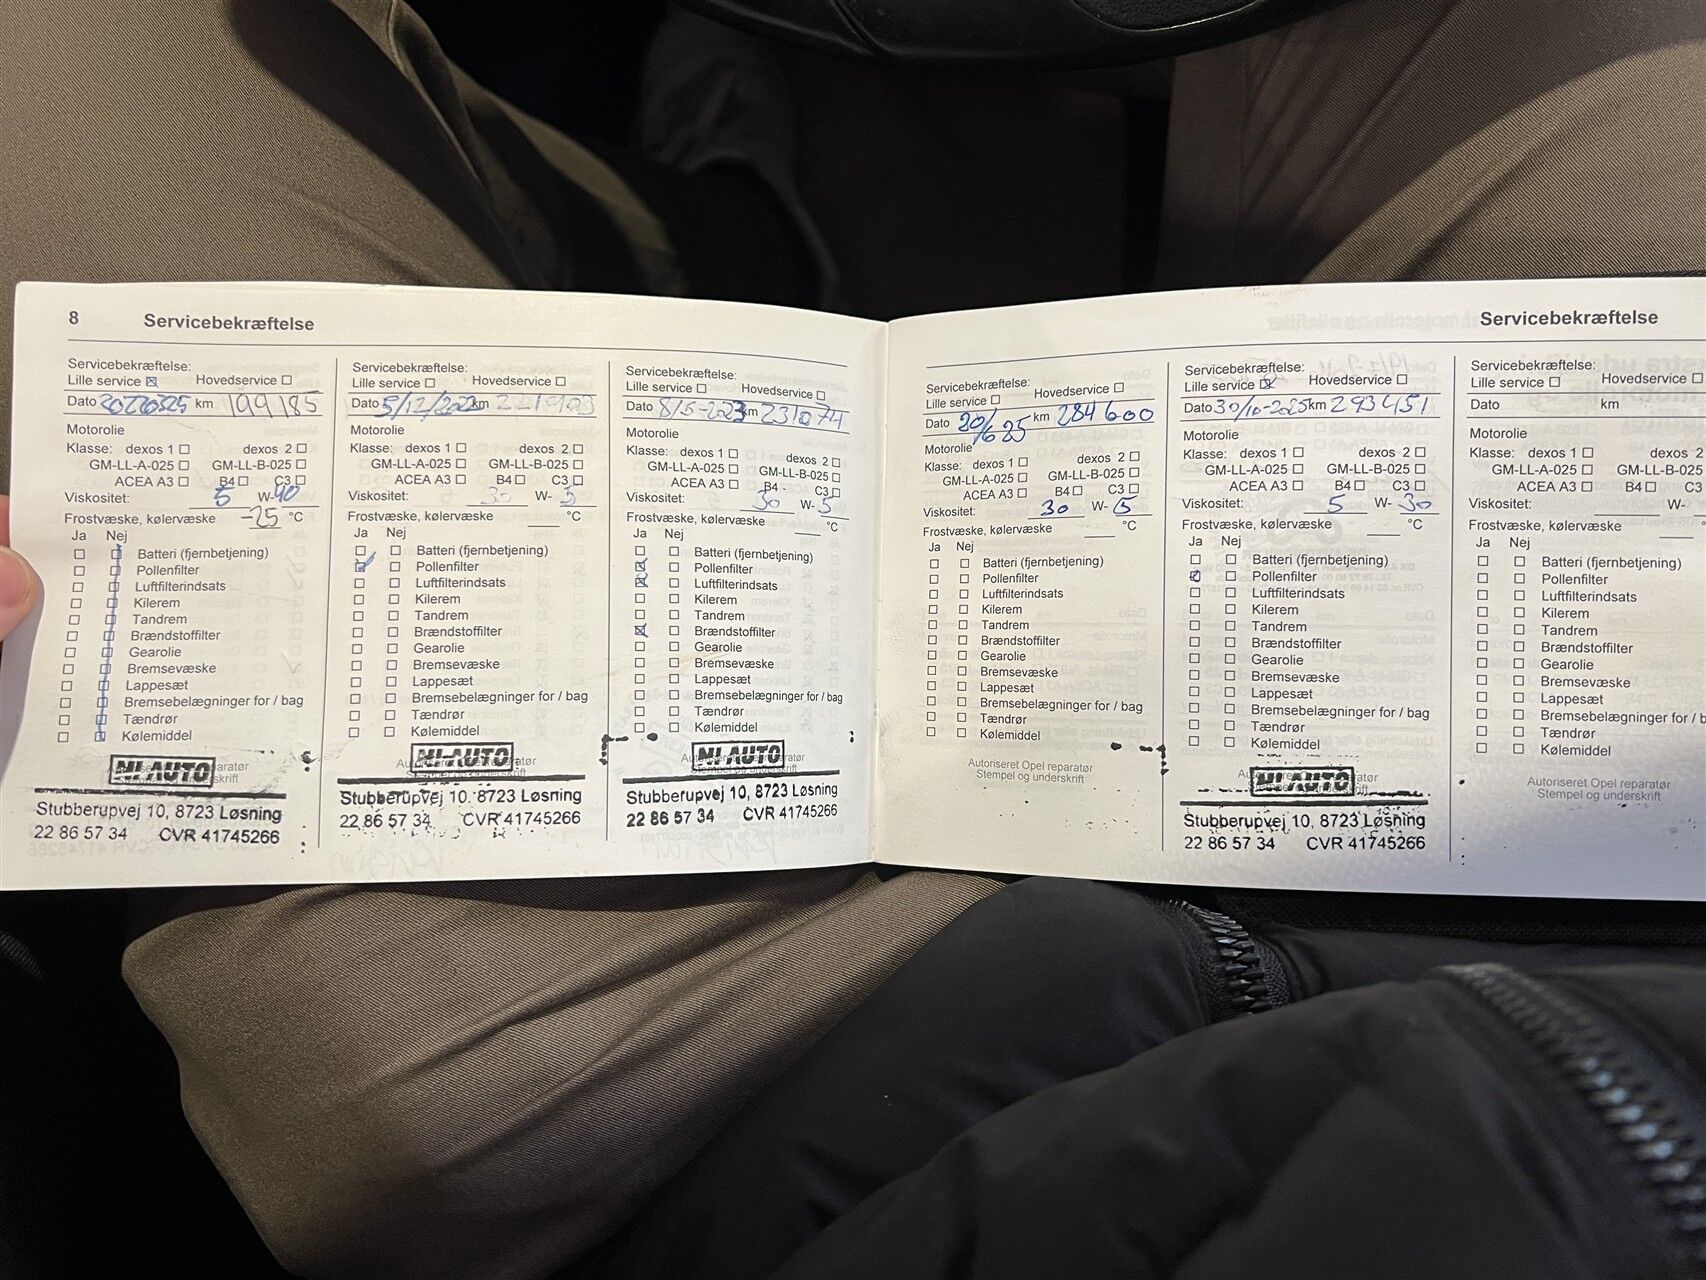 8 Servicebekræftelse
Servicebekræftelse:
Lille service ☒ Hovedservice ☐
Dato 20220525 km 199185
Motorolie
Klasse: dexos 1 ☐ dexos 2 ☐
GM-LL-A-025 ☐ GM-LL-B-025 ☐
ACEA A3 ☐ B4 ☐ C3 ☐
Viskositet: 5 W-40
Frostvæske, kølervæske -25 °C
Ja Nej
Batteri (fjernbetjening)
Pollenfilter
Luftfilterindsats
Kilerem
Tandrem
Brændstoffilter
Gearolie
Bremsevæske
Lappesæt
Bremsebelægninger for / bag
Tændrør
Kølemiddel
MI-AUTO
Stubberupvej 10, 8723 Løsning
22 86 57 34 CVR 41745266
Servicebekræftelse:
Lille service ☐ Hovedservice ☐
Dato 5/12/2022 km
Motorolie
Klasse: dexos 1 ☐ dexos 2 ☐
GM-LL-A-025 ☐ GM-LL-B-025 ☐
ACEA A3 ☐ B4 ☐ C3 ☐
Viskositet: 30 W- 5
Frostvæske, kølervæske °C
Ja Nej
Batteri (fjernbetjening)
Pollenfilter
Luftfilterindsats
Kilerem
Tandrem
Brændstoffilter
Gearolie
Bremsevæske
Lappesæt
Bremsebelægninger for / bag
Tændrør
Kølemiddel
MI-AUTO
Stubberupvej 10, 8723 Løsning
22 86 57 34 CVR 41745266
Servicebekræftelse:
Lille service ☐ Hovedservice ☐
Dato 8/6-2023 km 231074
Motorolie
Klasse: dexos 1 ☐ dexos 2 ☐
GM-LL-A-025 ☐ GM-LL-B-025 ☐
ACEA A3 ☐ B4 C3 ☐
Viskositet: 30 W- 5
Frostvæske, kølervæske °C
Ja Nej
Batteri (fjernbetjening)
Pollenfilter
Luftfilterindsats
Kilerem
Tandrem
Brændstoffilter
Gearolie
Bremsevæske
Lappesæt
Bremsebelægninger for / bag
Tændrør
Kølemiddel
MI-AUTO
Stubberupvej 10, 8723 Løsning
22 86 57 34 CVR 41745266
Servicebekræftelse
Servicebekræftelse:
Lille service ☐ Hovedservice ☐
Dato 20/6 25 km 284600
Motorolie
Klasse: dexos 1 ☐ dexos 2 ☐
GM-LL-A-025 ☐ GM-LL-B-025 ☐
ACEA A3 ☐ B4 ☐ C3 ☐
Viskositet: 30 W- 5
Frostvæske, kølervæske °C
Ja Nej
Batteri (fjernbetjening)
Pollenfilter
Luftfilterindsats
Kilerem
Tandrem
Brændstoffilter
Gearolie
Bremsevæske
Lappesæt
Bremsebelægninger for / bag
Tændrør
Kølemiddel
Autoriseret Opel reparatør
Stempel og underskrift
Servicebekræftelse:
Lille service ☒ Hovedservice ☐
Dato 30/10-2025 km 293451
Motorolie
Klasse: dexos 1 ☐ dexos 2 ☐
GM-LL-A-025 ☐ GM-LL-B-025 ☐
ACEA A3 ☐ B4 ☐ C3 ☐
Viskositet: 5 W- 30
Frostvæske, kølervæske °C
Ja Nej
Batteri (fjernbetjening)
Pollenfilter
Luftfilterindsats
Kilerem
Tandrem
Brændstoffilter
Gearolie
Bremsevæske
Lappesæt
Bremsebelægninger for / bag
Tændrør
Kølemiddel
MI-AUTO
Stubberupvej 10, 8723 Løsning
22 86 57 34 CVR 41745266
Servicebekræftelse:
Lille service ☐ Hovedservice ☐
Dato km
Motorolie
Klasse: dexos 1 ☐ dexos 2
GM-LL-A-025 ☐ GM-LL-B-025
ACEA A3 ☐ B4 ☐ C3
Viskositet: W-
Frostvæske, kølervæske
Ja Nej
Batteri (fjernbetjening)
Pollenfilter
Luftfilterindsats
Kilerem
Tandrem
Brændstoffilter
Gearolie
Bremsevæske
Lappesæt
Bremsebelægninger for / b
Tændrør
Kølemiddel
Autoriseret Opel reparatør
Stempel og underskrift